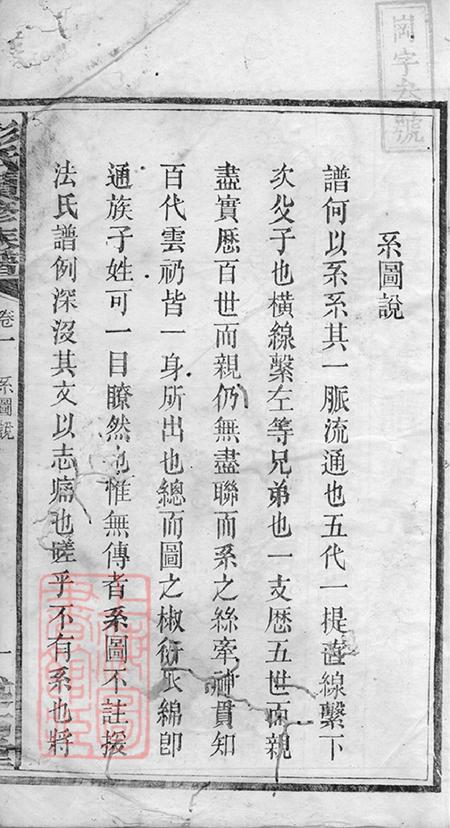 崗字叁號
系圖說
譜何以系系其一脈流通也五代一提舊線繫下
次父子也橫線繫左等兄弟也一支歷五世而親
盡實歷百世而親仍無盡聯而系之絲牽神貫知
百代雲礽皆一身所出也總而圖之椒衍瓜綿即
通族子姓可一目瞭然也惟無傳者系圖不註援
法氏譜例深沒其文以志痛也嗟乎不有系也將
彭氏續修族譜
卷一
系圖說
一